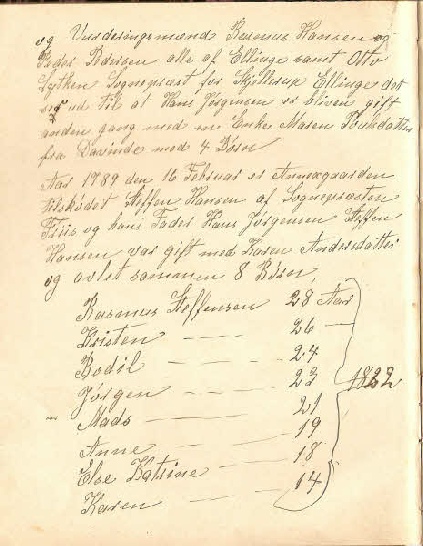 og Vurderingsmænd Rasmus Hansen og
Peder Pedersen alle af Ellinge samt Otto
Lytken Sognepræst for Skjellerup Ellinge det
ud til at Hans Jørgensen er bliven gift
anden gang med en Enke Maren
fra Davinde med 4 Børn
Aar 1789 den 16 Februar er Annexgaarden
tilskjødet Steffen Hansen af Sognepræsten
Friis og hans Fader Hans Jørgensen Steffen
Hansen var gift med Karen Andersdatter
og avlet sammen 8 Børn,
Rasmus Steffensen 28 Aar
Kristen — — — 26 —
Bodil — — — 24
Jørgen — — — 23 1822
Mads — — — 21
Anne — — — 19
Else Katrine — — 18
Karen — — — 14